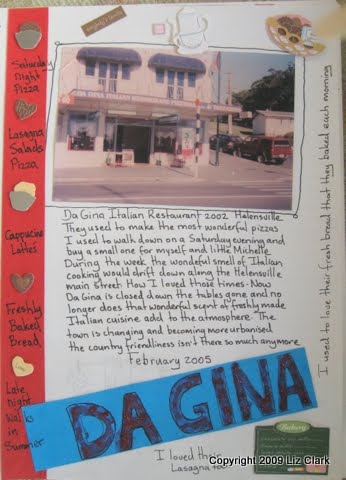 Saturday
Night
Pizza
Lasagna
Salads
Pizza
Cappucino
Lattes
Freshly
Baked
Bread
Late
Night
Walks
in
Summer
DA GINA ITALIAN RESTAURANT
Da Gina Italian Restaurant 2002 Helensville
They used to make the most wonderful pizzas
I used to walk down on a Saturday evening and
buy a small one for myself and little Michelle
During the week the wondeful smell of Italian
cooking would drift down along the Helensville
main street. How I loved those times. Now
Da Gina is closed down the tables gone and no
longer does that wonderful scent of freshly made
Italian cuisine add to the atmosphere. The
town is changing and becoming more urbanised
the country friendliness isn't there so much anymore
February 2005
I used to love their fresh bread that they baked each morning
DA GINA
I loved their
Lasagna too!
Bakery
Copyright 2009 Liz Clark